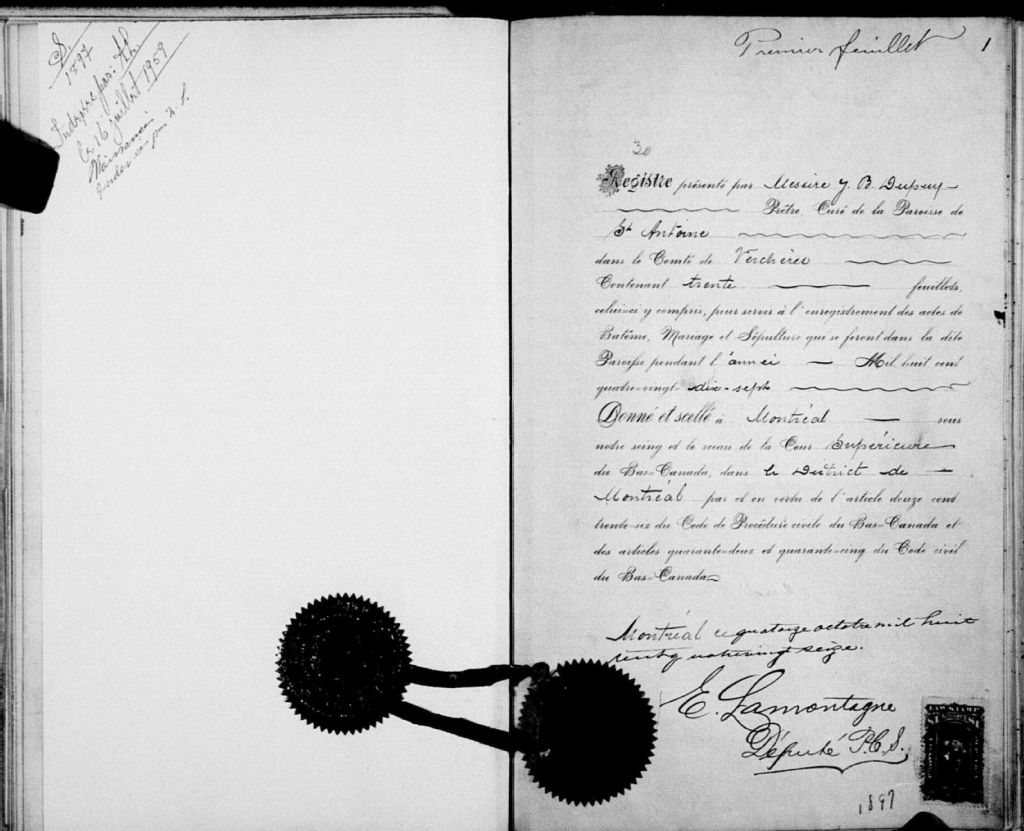 S.
1897
Indexé par: Ah.
le 16 juillet 1959
Premier feuillet 1
30
Registre présenté par Messire J. B. Dupuy
Prêtre, Curé de la Paroisse de
St Antoine
dans le Comté de Verchères
Contenant trente feuillets,
celui-ci y compris, pour servir à l'enregistrement des actes de
Batême, Mariage et Sépulture qui se feront dans la dite
Paroisse pendant l'année Mil huit cent
quatre-vingt dix-sept
Donné et scellé à Montréal sous
notre seing et le sceau de la Cour Supérieure
du Bas-Canada, dans le District de
Montréal par et en vertu de l'article douze cent
trente-six du Code de Procédure civile du Bas-Canada et
des articles quarante-deux et quarante-cinq du Code civil
du Bas-Canada
Montréal ce quatorze octobre mil huit
cent quatrevingt seize.
E. Lamontagne
Député P.C.S.
1897